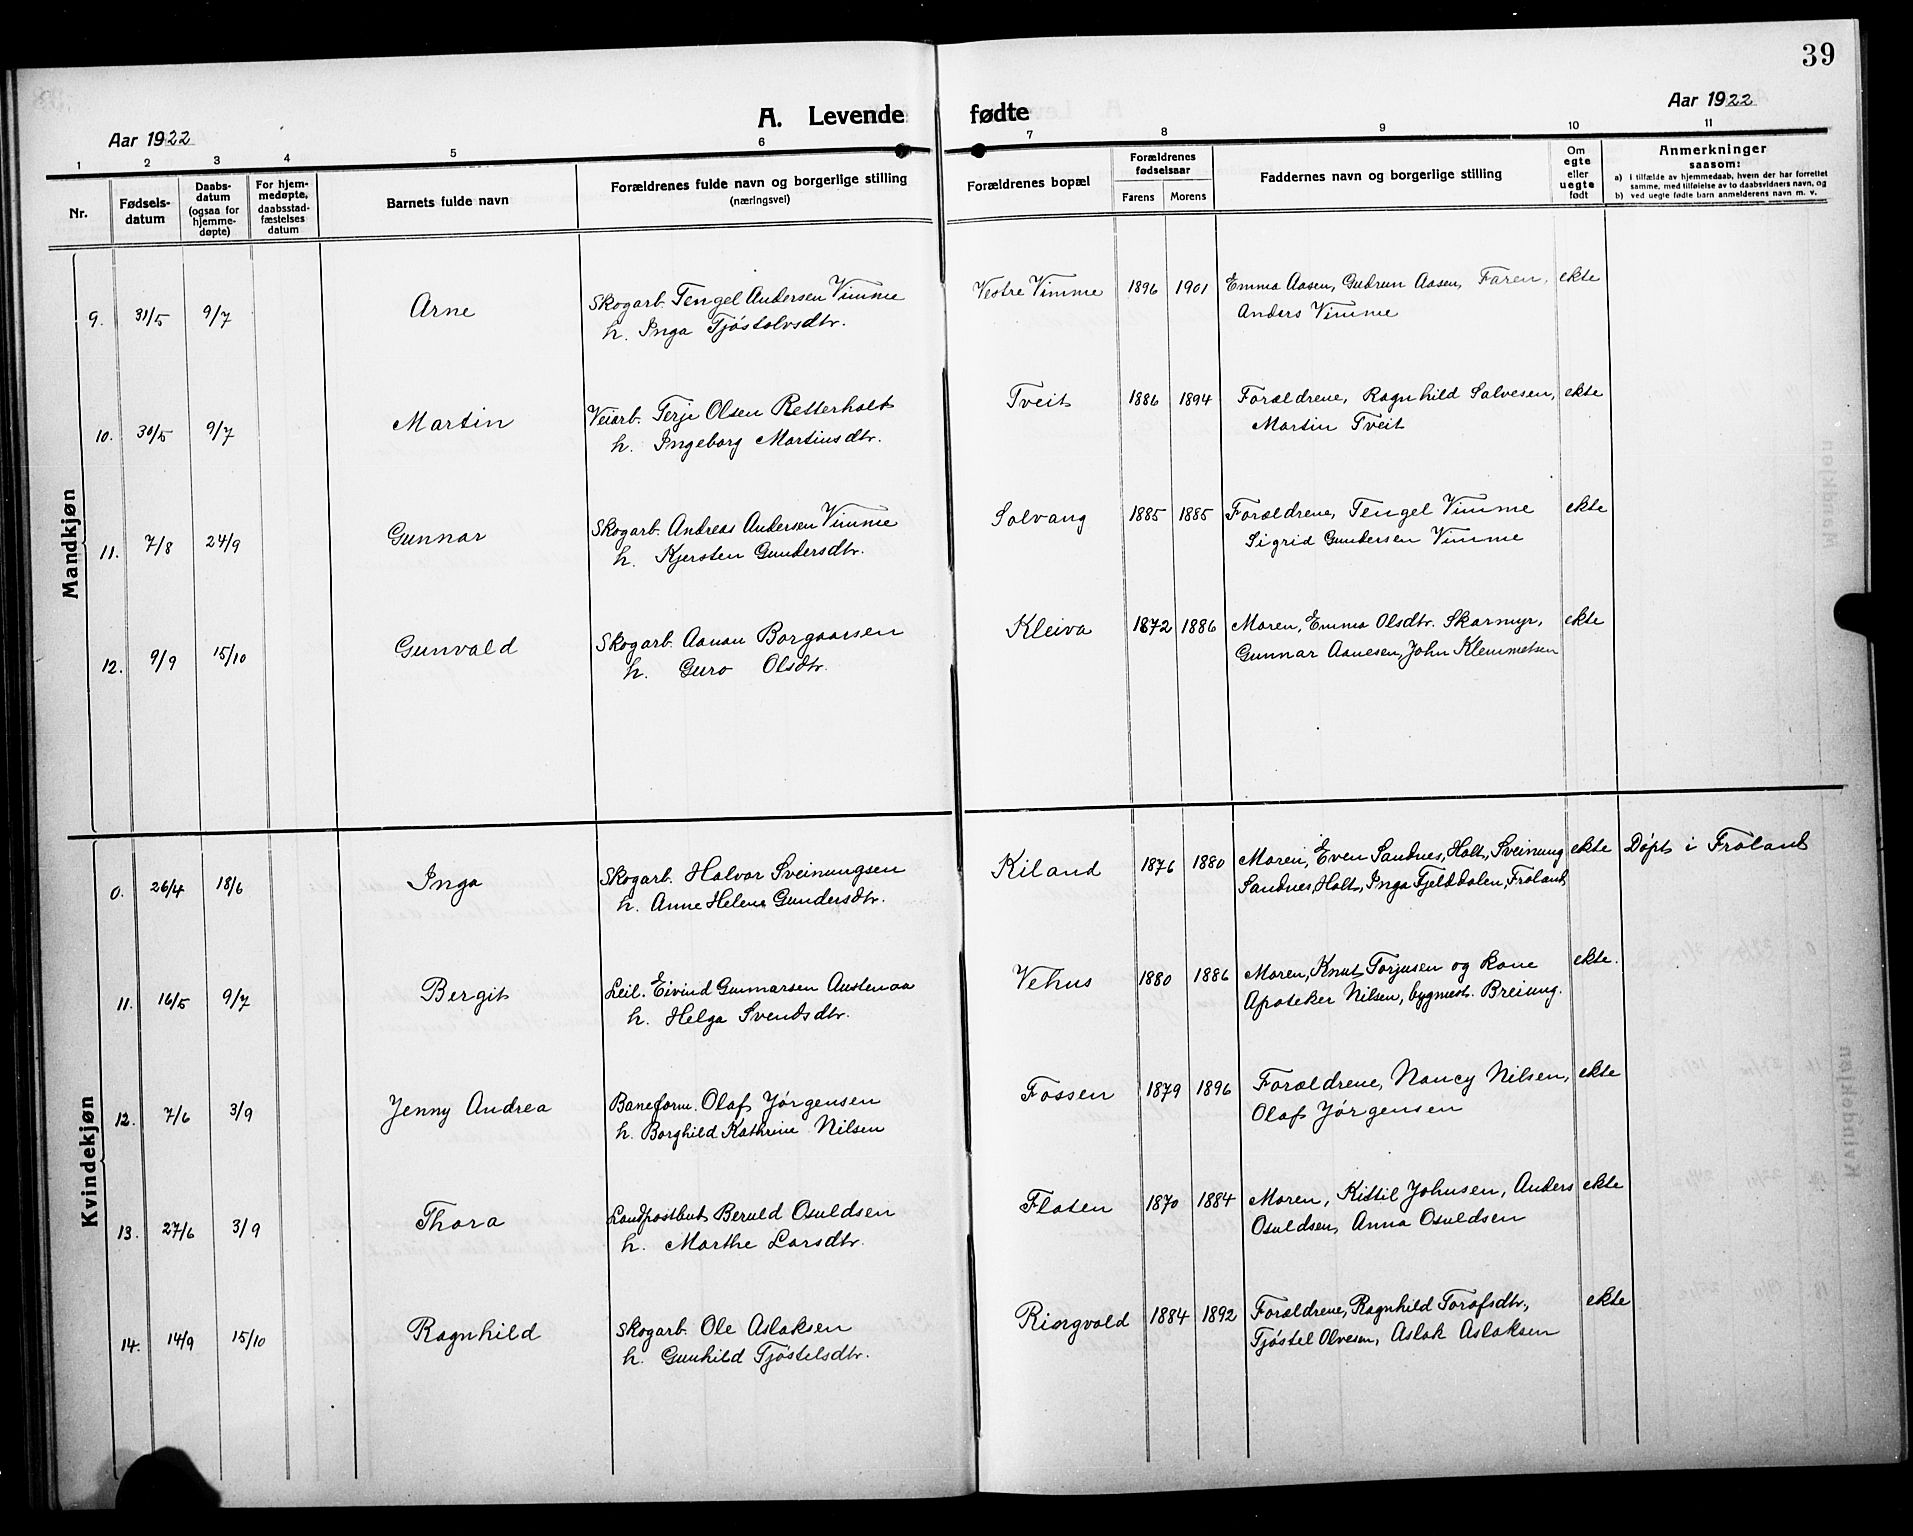 39
A. Levende fødte
Aar 1922
Aar 1922
1 2 3 4 5 6 7 8 9 10 11
Nr.
Fødsels-
datum
Daabs-
datum
(ogsaa for
hjemme-
døpte)
For hjem-
medøpte,
daabsstad-
fæstelses
datum
Barnets fulde navn
Forældrenes fulde navn og borgerlige stilling
(næringsvei)
Forældrenes bopæl
Forældrenes
fødselsaar
Farens Morens
Faddernes navn og borgerlige stilling
Om
egte
eller
uegte
født
Anmerkninger
saasom:
a) i tilfælde av hjemmedaab, hvem der har forrettet
samme, med tilføielse av to daabsvidners navn, og
b) ved uegte fødte barn anmelderens navn m. v.
Mandkjøn
9. 31/5 9/7 Arne Skogarb. Tengel Andersen Vimme Vestre Vimme 1896 1901 Emma Aasen, Gudrun Aasen, Faren, ekte
h. Inga Tjøstolvsdtr. Anders Vimme
10. 30/5 9/7 Martin Veiarb. Terje Olsen Retterholt Tveit 1886 1894 Forældrene, Ragnhild Salvesen, ekte
h. Ingeborg Martinsdtr. Martin Tveit
11. 7/8 24/9 Gunnar Skogarb. Andreas Andersen Vimme Solvang 1885 1885 Forældrene, Tengel Vimme ekte
h. Kjersten Gundersdtr. Sigrid Gundersen Vimme
12. 9/9 15/10 Gunvald Skogarb. Aanon Borgaarsen Kleiva 1872 1886 Moren, Emma Olsdtr. Skarmyr, ekte
h. Guro Olsdtr. Gunnar Aanesen, John Klemmetsen
Kvindekjøn
0. 26/4 18/6 Inga Skogarb. Halvor Sveinungsen Kiland 1876 1880 Moren, Even Sandnes, Holt, Sveinung ekte Døpt i Froland
h. Anne Helene Gundersdtr. Sandnes, Holt, Inga Fjelddalen, Froland
11. 16/5 9/7 Bergit Leil. Eivind Gunnarsen Austenaa Vehus 1880 1886 Moren, Knut Torjusen og kone ekte.
h. Helga Svendsdtr. Apoteker Nilsen, bygmest. Breiung.
12. 7/6 3/9 Jenny Andrea Baneform. Olaf Jørgensen Fossen 1879 1896 Forældrene, Nancy Nilsen, ekte
h. Borghild Kathrine Nilsen Olaf Jørgensen
13. 27/6 3/9 Thora Landpostbud Beruld Osuldsen Flaten 1870 1884 Moren, Kittil Johnsen, Anders ekte
h. Marthe Larsdtr. Osuldsen, Anna Osuldsen
14. 14/9 15/10 Ragnhild Skogarb. Ole Aslaksen Ringvold 1884 1892 Forældrene, Ragnhild Torafsdtr., ekte
h. Gunhild Tjøstelsdtr. Tjøstel Olvesen, Aslak Aslaksen